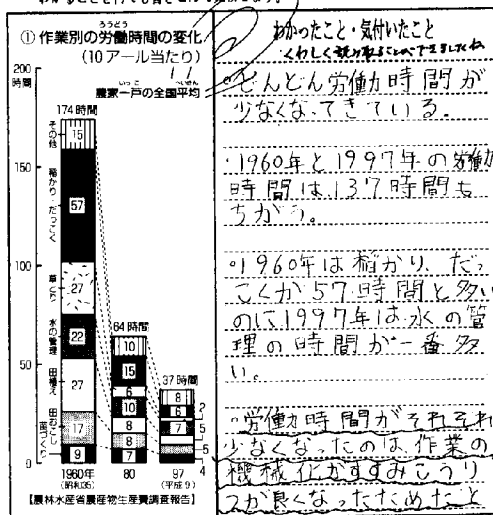 ① 作業別の労働時間の変化
ろうどう
(10 アール当たり)
農家一戸の全国平均
いっこ
200
時間
150
100
50
0
174時間
64時間
37時間
その他
稲かり・だっこく
草とり
水の管理
田植え
田おこし
苗づくり
15
57
27
22
27
17
9
10
15
6
10
8
8
7
8
6
7
2
5
5
4
1960年
(昭和35)
80
97
(平成9)
【農林水産省農産物生産費調査報告】
わかったこと・気付いたこと
くわしく読み取ることができましたね
・どんどん労働力時間が
少なくなってきている。
・1960年と1997年の労働力
時間は137時間も
ちがう。
・1960年は稲かり、だっ
こくが57時間と多い
のに1997年は水の管
理の時間が一番多
い。
・労働力時間がそれぞれ
少なくなったのは、作業の
機械化がすすみこうり
つが良くなったためだと